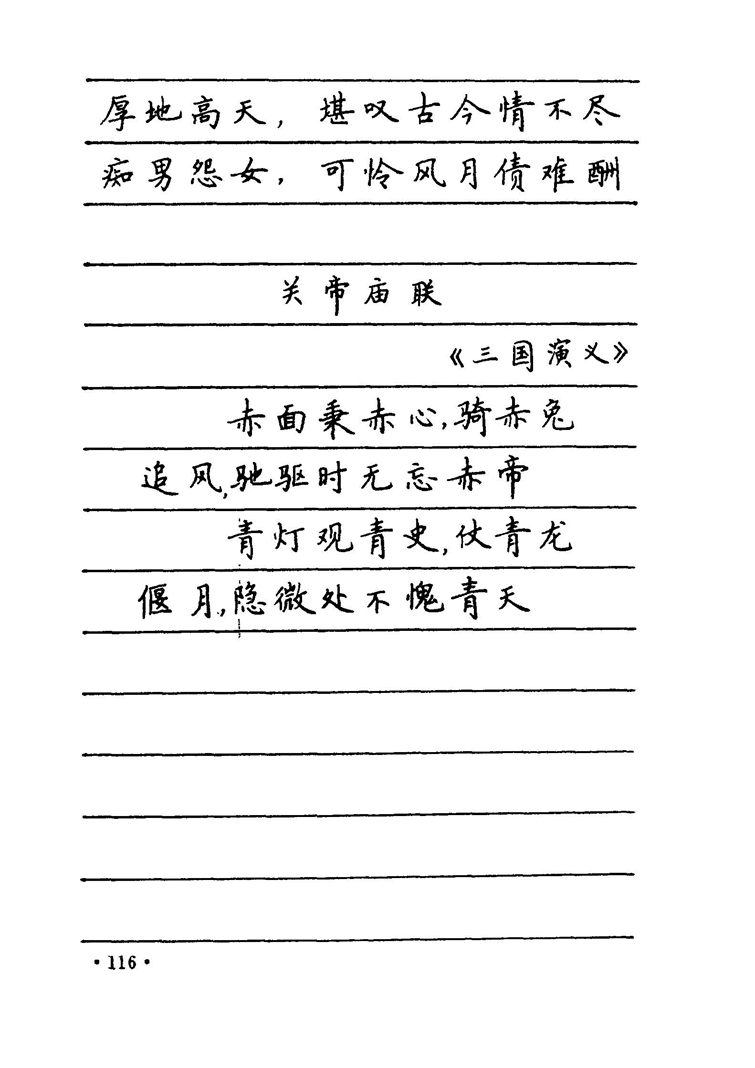 厚地高天，堪叹古今情不尽
痴男怨女，可怜风月债难酬
关帝庙联
《三国演义》
赤面秉赤心,骑赤兔
追风,驰驱时无忘赤帝
青灯观青史,仗青龙
偃月,隐微处不愧青天
·116·